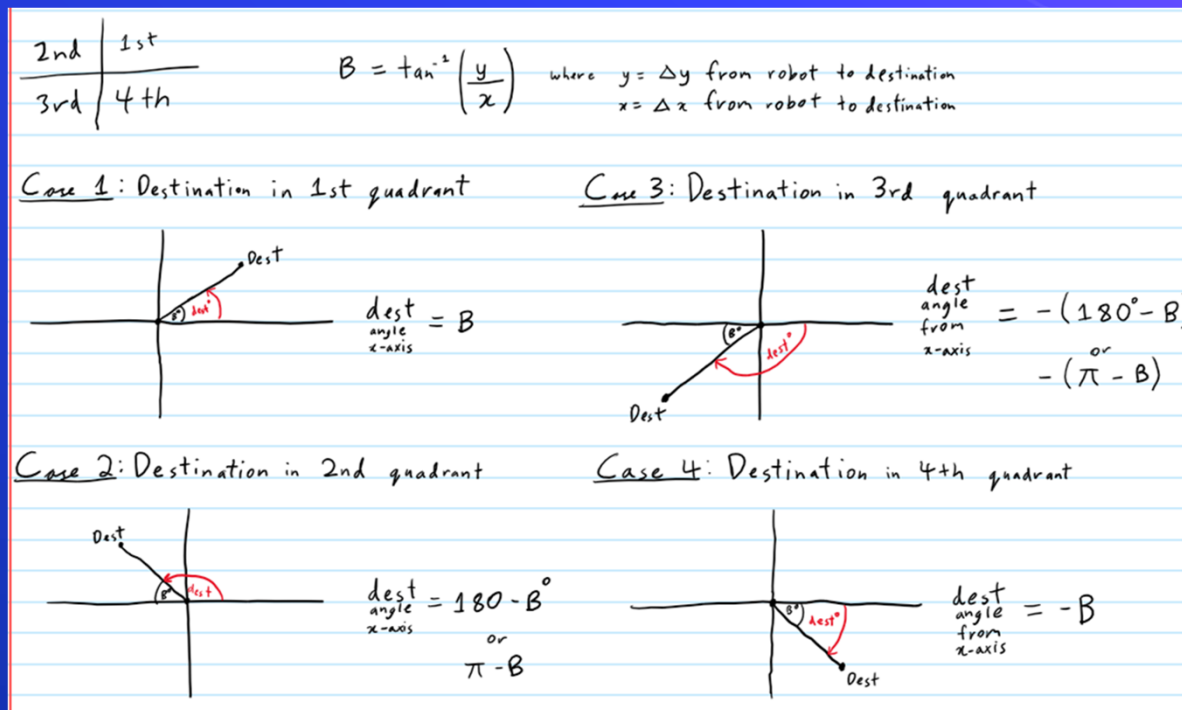 2nd 1st
3rd 4th
B = tan⁻¹ (y/x) where y = Δy from robot to destination
x = Δx from robot to destination
Case 1: Destination in 1st quadrant
Dest
B° dest°
dest angle x-axis = B
Case 2: Destination in 2nd quadrant
Dest
B° dest
dest angle x-axis = 180 - B°
or
π - B
Case 3: Destination in 3rd quadrant
B° dest°
Dest
dest angle from x-axis = -(180° - B
or
-(π - B)
Case 4: Destination in 4th quadrant
B° dest°
Dest
dest angle from x-axis = -B